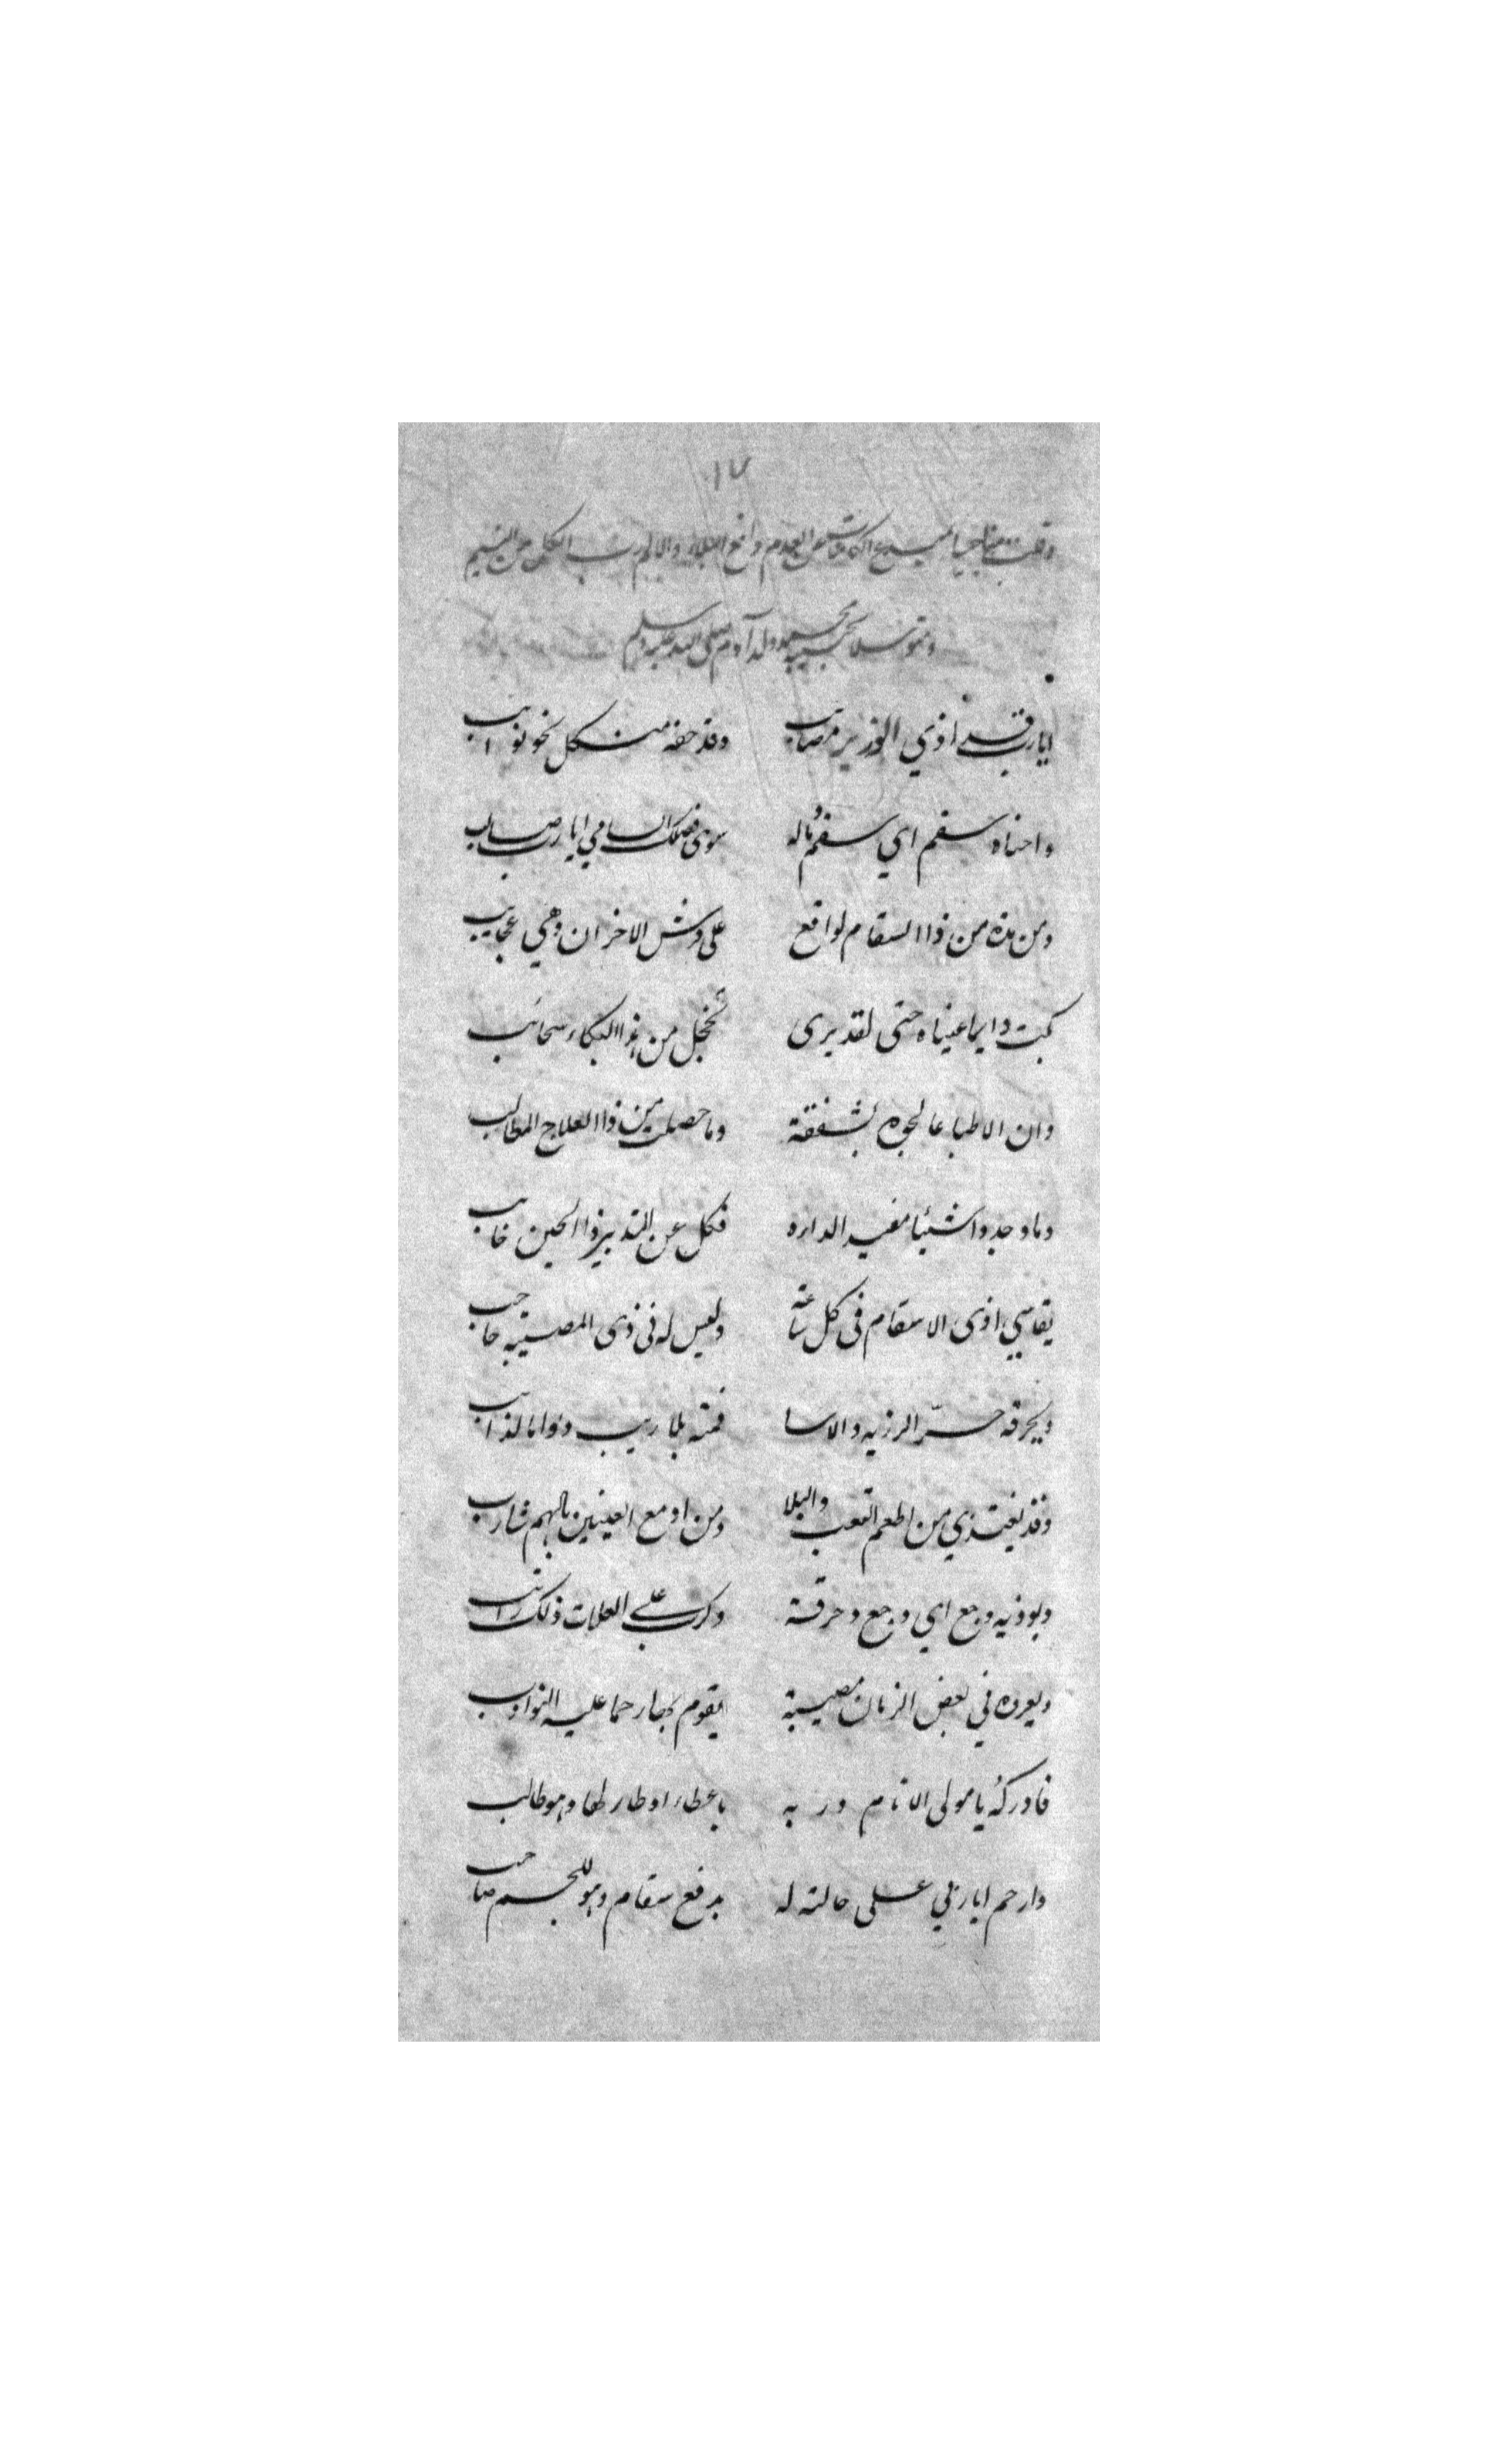 ١٧
وقلت مناجيا لمبدع الكائنات من العدم دافع البلاء والالم رب الكل من النسيم
ومتوسلا بحبيبه محمد ولد آدم صلى الله عليه وسلم
ايا رب قد اذي الوزير مصايب وقد حفه من كل نحو نوايب
واحناه سقم اي سقم وماله سوى فضلك السامي ايا رب صالب
ومن هذه من ذا السقام لواقع على فرش الاحزان وهي عجايب
بكت دايما عيناه حتى لقد يرى تخجل من هذا البكاء سحائب
وان الاطبا عالجوه بشفقة وما حصلت من ذا العلاج المطالب
وما وجدوا شيئا مفيدا لداره فكل عن التدبير ذا الحين خايب
يقاسي اذى الاسقام في كل ساعة وليس له في ذى المصيبة حاجب
ويحرقه حر الرزيه والاسا فمنه بلا ريب دواما لذايب
وقد يغتذي من اطعم التعب والبلا ومن ادمع العينين بالهم شارب
ويوذيه وجع اي وجع وحرقة وكرب على العلات ذلك راتب
ويعره في بعض الزمان مصيبة يقوم بها رحما عليه النوادب
فادركه يا مولى الانام وربه باعطاء اوطار لها وهو طالب
وارحم ايا ربي على حالته له بدفع سقام وهو للجسم صاحب